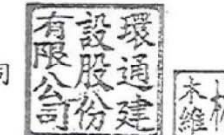 司
環通建
設股份
有限公司
維